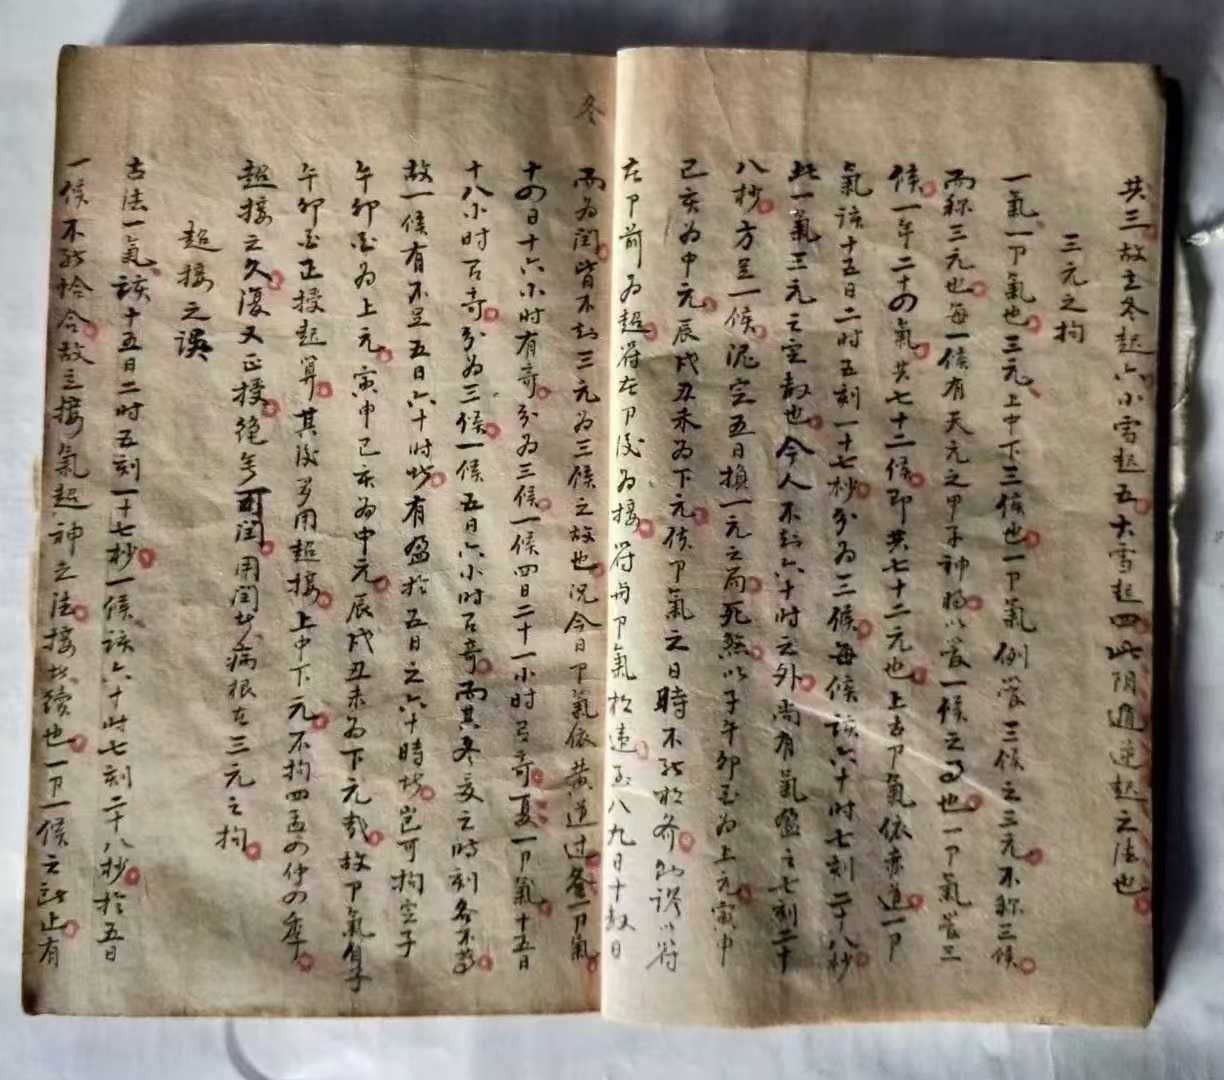 共三故立冬起六小雪起五大雪起四此阴遁逆起之法也
三元之拘
一氣一卩氣也三元上中下三候也一卩氣例管三候之三元不称三候
而称三元也每一候有天元之甲子神将以管一候之事也一卩氣管三
候一年二十四氣共七十二候即共七十二元也上古卩氣依赤道一卩
氣该十五日二时五刻一十七秒分为三候每候该六十时七刻二十八秒
此一氣三元之定数也今人不知六十时之外尚有氣盈之七刻二十
八秒方足一候泥定五日換一元之局死煞以子午卯酉为上元寅申
己亥为中元辰戌丑未为下元後卩氣之日時不能吻合以符
在卩前为超符在卩後为接符与卩氣相違至八九日十数日
而为闰皆不知三元为三候之故也况今日卩氣依黄道过冬一卩氣
冬
十四日十六小时有奇分为三候一候四日二十一小时有奇夏一卩氣十五日
十八小时有奇分为三候一候五日六小时有奇而其冬夏之时刻各不等
故一候有不足五日六十时者有盈於五日之六十時者豈可拘定子
午卯酉为上元寅申己亥为中元辰戌丑未为下元哉故卩氣自子
午卯酉正授起算其後方用超接上中下元不拘四孟四仲四季
超接之久復又正授绝无可闰用闰者病根在三元之拘
超接之误
古法一氣该十五日二时五刻一十七秒一候该六十时七刻二十八秒於五日
一候不能恰合故立接氣起神之法接者续也一卩一候之既止有